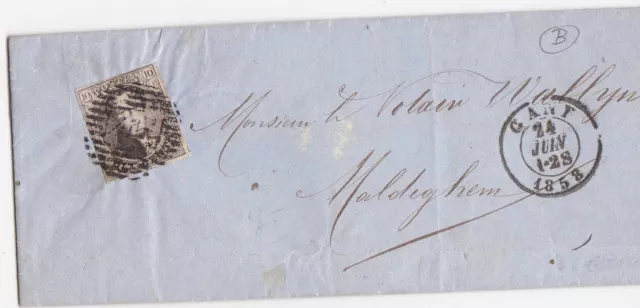 B
10 10
POSTES
Monsieur le Notair Wallyn
Maldeghem
GAND
24
JUIN
1-2S
1858